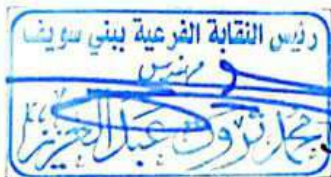 رئيس النقابة الفرعية ببني سويف
مهندس
محمد ثروت عبد العزيز